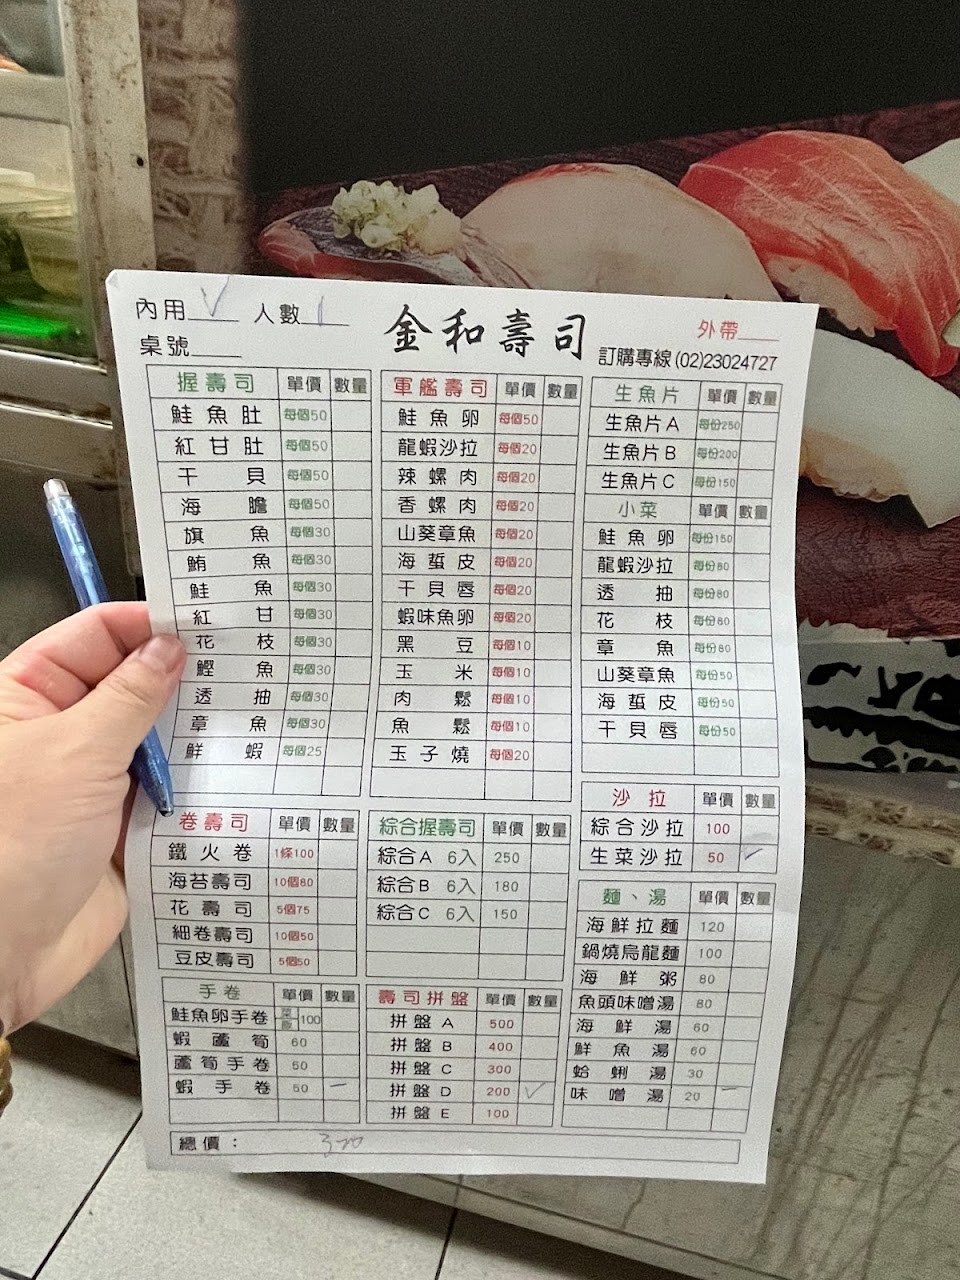 內用 V 人數 1
金和壽司
外帶
桌號
訂購專線 (02)23024727
握壽司 單價 數量
鮭魚肚 每個50
紅甘肚 每個50
干貝 每個50
海膽 每個50
旗魚 每個30
鮪魚 每個30
鮭魚 每個30
紅甘 每個30
花枝 每個30
鰹魚 每個30
透抽 每個30
章魚 每個30
鮮蝦 每個25
軍艦壽司 單價 數量
鮭魚卵 每個50
龍蝦沙拉 每個20
辣螺肉 每個20
香螺肉 每個20
山葵章魚 每個20
海蜇皮 每個20
干貝唇 每個20
蝦味魚卵 每個20
黑豆 每個10
玉米 每個10
肉鬆 每個10
魚鬆 每個10
玉子燒 每個20
生魚片 單價 數量
生魚片A 每份250
生魚片B 每份200
生魚片C 每份150
小菜 單價 數量
鮭魚卵 每份150
龍蝦沙拉 每份80
透抽 每份80
花枝 每份80
章魚 每份80
山葵章魚 每份50
海蜇皮 每份50
干貝唇 每份50
卷壽司 單價 數量
鐵火卷 1條100
海苔壽司 10個80
花壽司 5個75
細卷壽司 10個50
豆皮壽司 5個50
綜合握壽司 單價 數量
綜合A 6入 250
綜合B 6入 180
綜合C 6入 150
沙拉 單價 數量
綜合沙拉 100
生菜沙拉 50 ✓
麵、湯 單價 數量
海鮮拉麵 120
鍋燒烏龍麵 100
海鮮粥 80
魚頭味噌湯 80
海鮮湯 60
鮮魚湯 60
蛤蜊湯 30
味噌湯 20 一
手卷 單價 數量
鮭魚卵手卷 100
蝦蘆筍 60
蘆筍手卷 50
蝦手卷 50 一
壽司拼盤 單價 數量
拼盤A 500
拼盤B 400
拼盤C 300
拼盤D 200 ✓
拼盤E 100
總價： 320